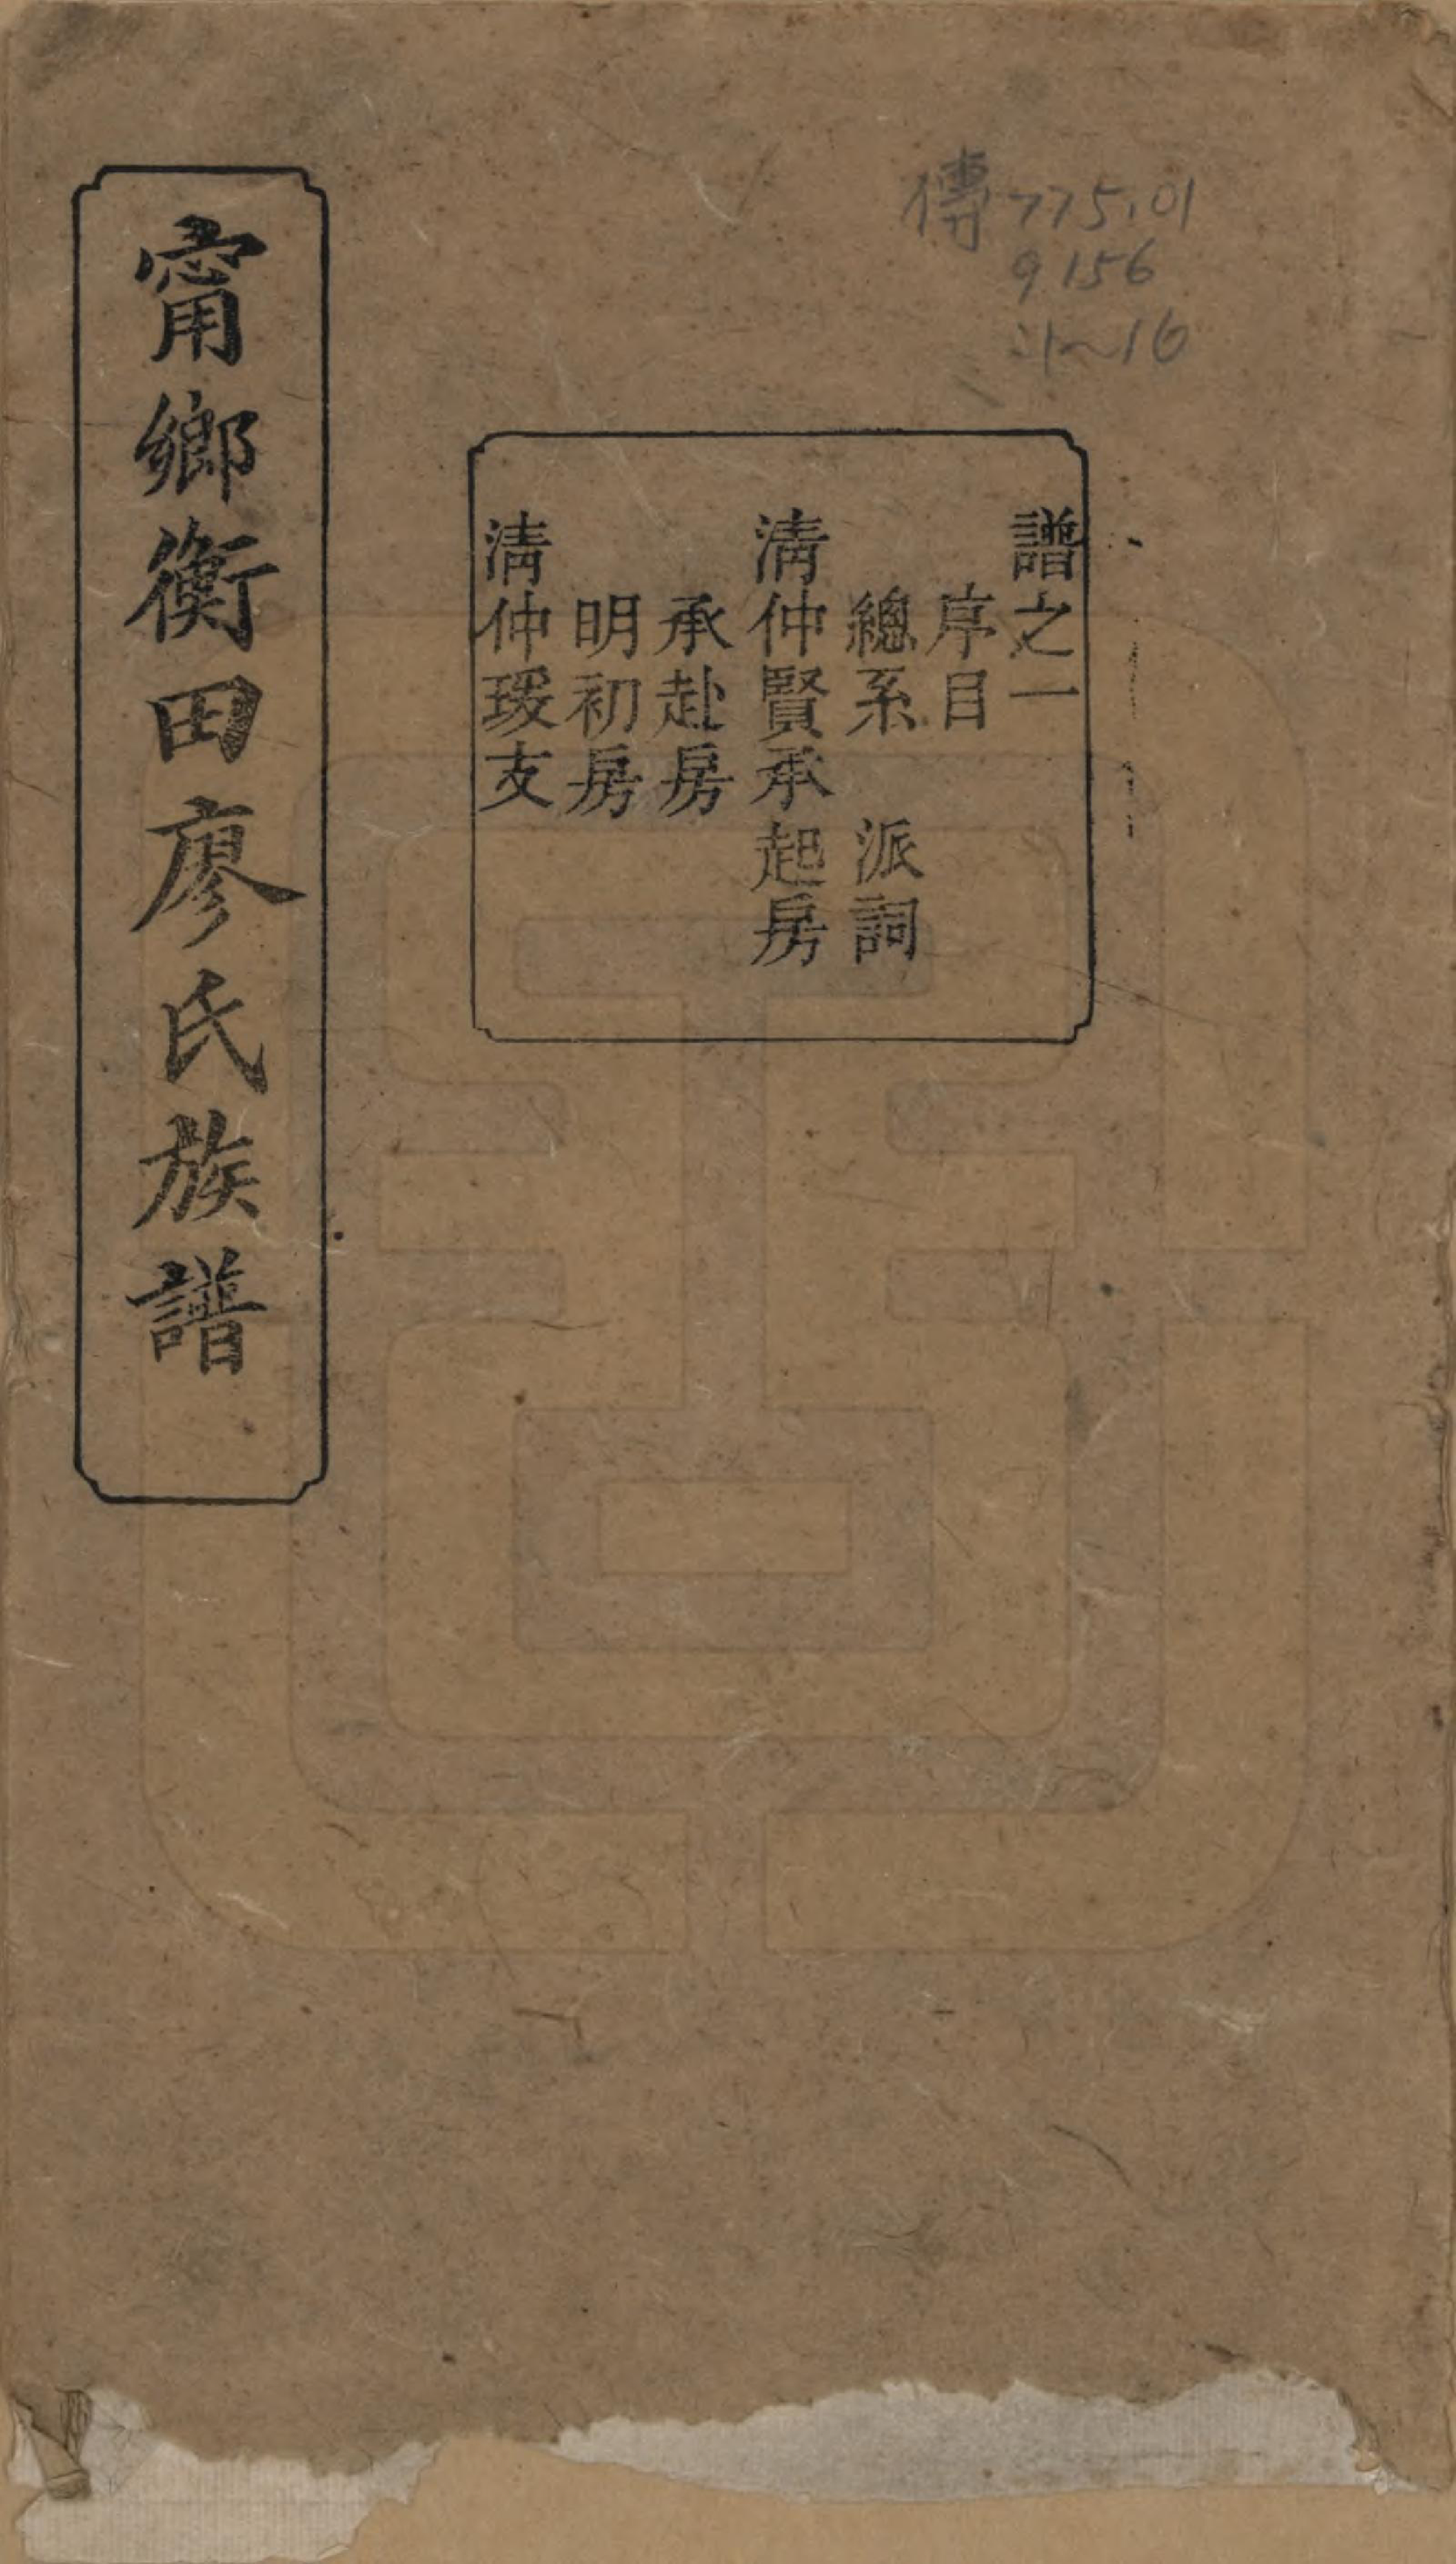 傳 775.01
9156
:1~16
譜之一
序目
總系 派詞
淸仲賢承起房
承赴房
明初房
淸仲瑗支
甯鄉衡田廖氏族譜